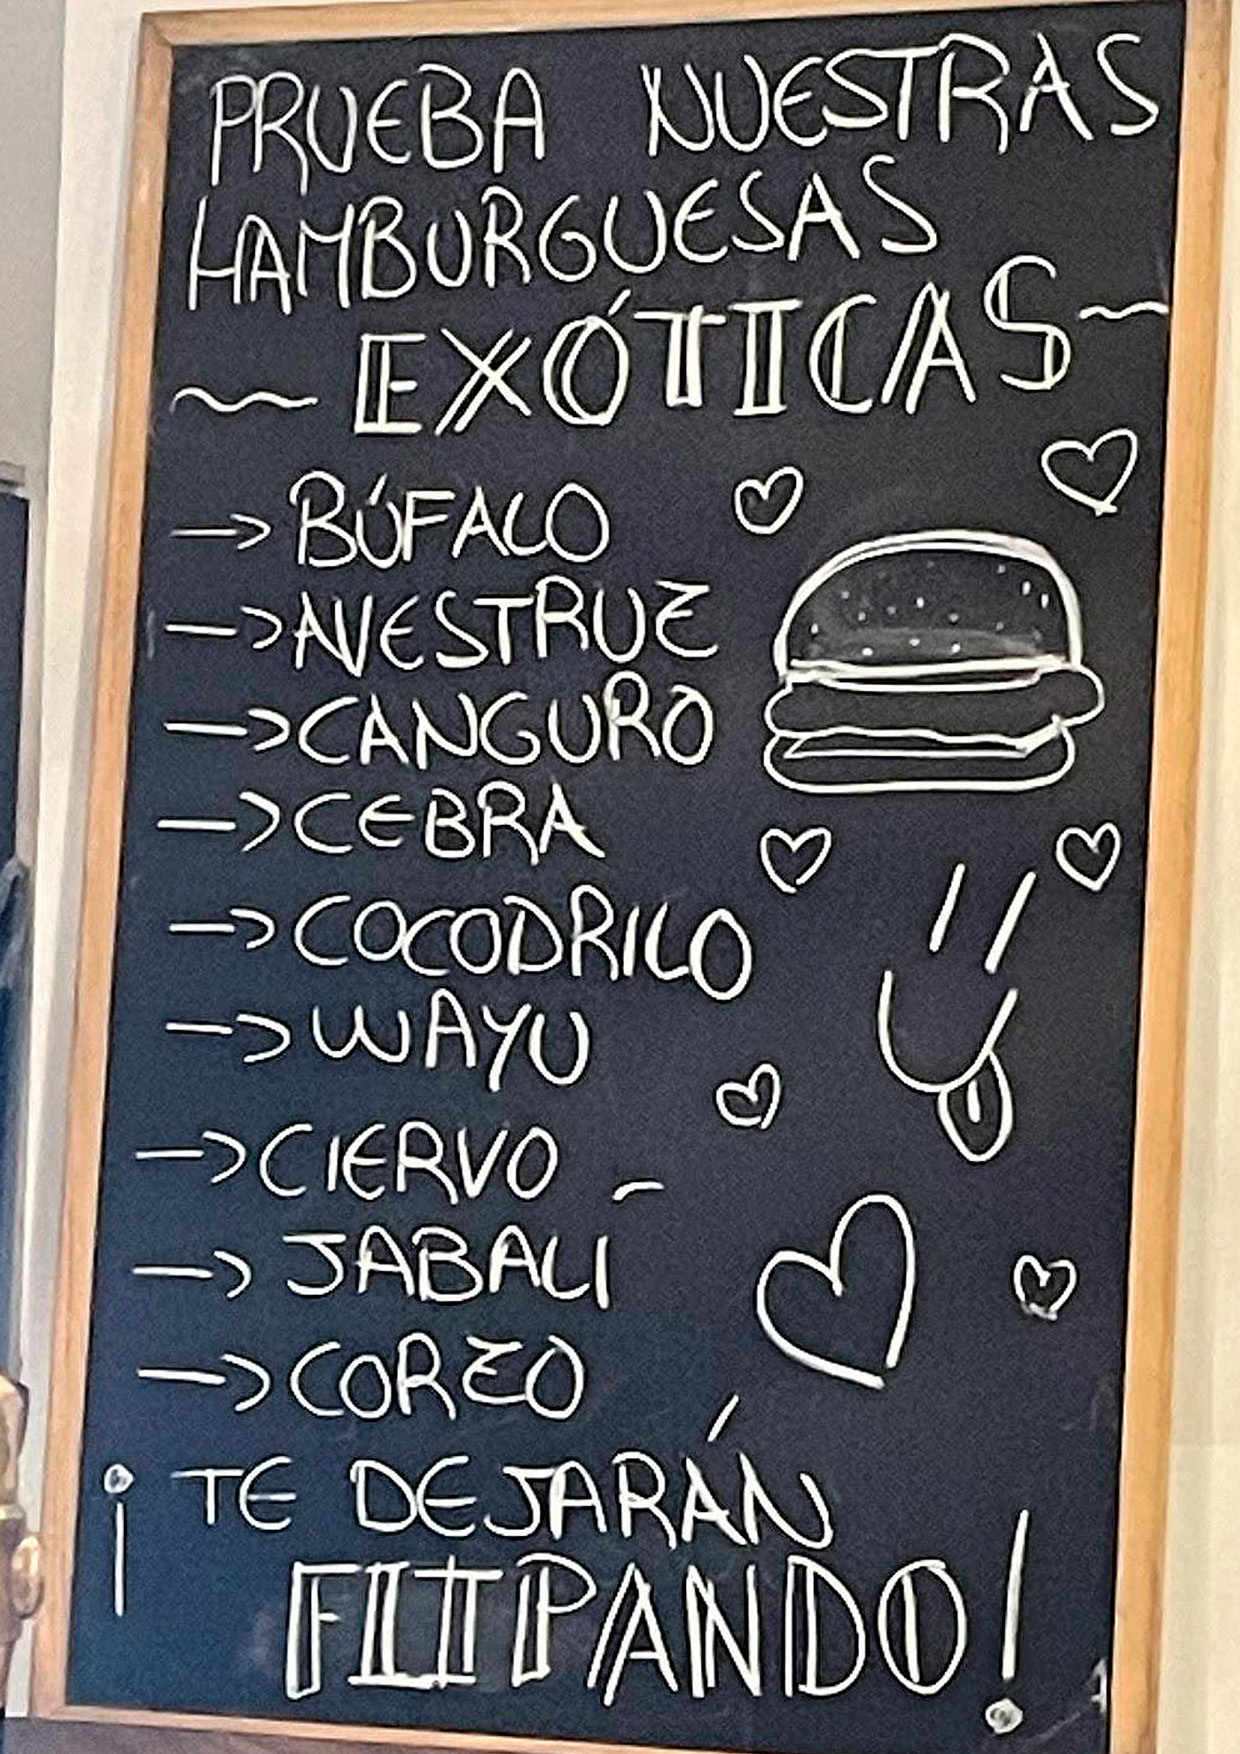 PRUEBA NUESTRAS
HAMBURGUESAS
~ EXÓTICAS ~
→ BÚFALO
→ AVESTRUZ
→ CANGURO
→ CEBRA
→ COCODRILO
→ WAYU
→ CIERVO
→ JABALÍ
→ CORZO
¡TE DEJARÁN
FLIPANDO!